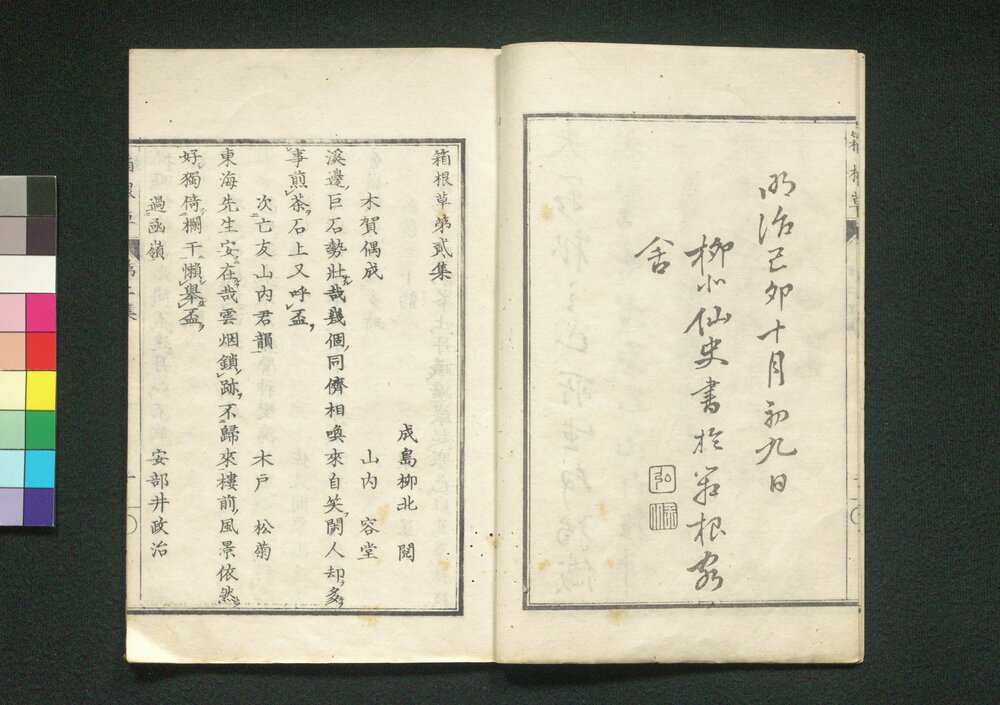 明治己卯十月初九日
柳北仙史書於箱根客
舍
箱根草第貳集
成島柳北 閲
木賀偶成 山内 容堂
溪邊巨石勢壯哉幾個同儕相喚來自笑閑人却多
事煎茶石上又呼盃
次亡友山内君韻 木戸 松菊
東海先生安在哉雲烟鎖跡不歸來樓前風景依然
好獨倚欄干懶舉盃
過函嶺 安部井政治